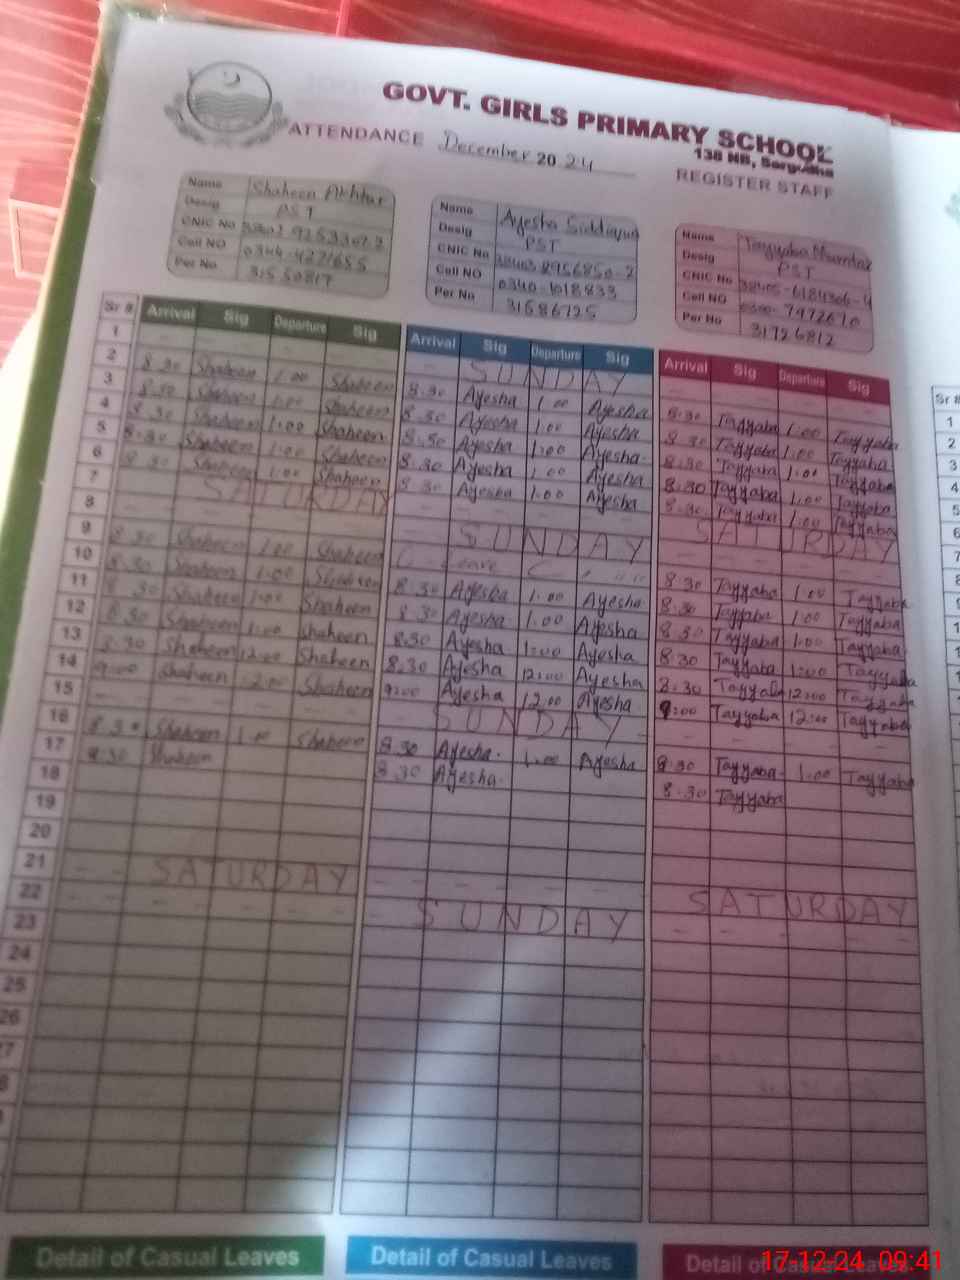 GOVT. GIRLS PRIMARY SCHOOL
138 NB, Sargodha
ATTENDANCE December 2024 REGISTER STAFF
Name Shaheen Akhtar
Desig PST
CNIC No
Cell NO 0344-4221655
Per No 31550817
Name Ayesha Siddiqua
Desig PST
CNIC No 38403 8956850-2
Cell NO 0340-1018833
Per No 31586725
Name Tayyaba Mumtaz
Desig PST
CNIC No 38405-6184306-4
Cell NO 0300-7972670
Per No 31726812
Sr # Arrival Sig Departure Sig Arrival Sig Departure Sig Arrival Sig Departure Sig
1 SUNDAY
2 8.30 Shaheen 1.00 Shaheen 8.30 Ayesha 1.00 Ayesha 8.30 Tayyaba 1.00 Tayyaba
3 8.30 Shaheen 1.00 Shaheen 8.30 Ayesha 1.00 Ayesha 8.30 Tayyaba 1.00 Tayyaba
4 8.30 Shaheen 1.00 Shaheen 8.30 Ayesha 1.00 Ayesha 8.30 Tayyaba 1.00 Tayyaba
5 8.30 Shaheen 1.00 Shaheen 8.30 Ayesha 1.00 Ayesha 8.30 Tayyaba 1.00 Tayyaba
6 8.30 Shaheen 1.00 Shaheen 8.30 Ayesha 1.00 Ayesha 8.30 Tayyaba 1.00 Tayyaba
7 SATURDAY SATURDAY
8 SUNDAY
9 8.30 Shaheen 1.00 Shaheen C Leave 8.30 Tayyaba 1.00 Tayyaba
10 8.30 Shaheen 1.00 Shaheen 8.30 Ayesha 1.00 Ayesha 8.30 Tayyaba 1.00 Tayyaba
11 8.30 Shaheen 1.00 Shaheen 8.30 Ayesha 1.00 Ayesha 8.30 Tayyaba 1.00 Tayyaba
12 8.30 Shaheen 1.00 Shaheen 8.30 Ayesha 1:00 Ayesha 8.30 Tayyaba 1:00 Tayyaba
13 8.30 Shaheen 12:00 Shaheen 8.30 Ayesha 12:00 Ayesha 8.30 Tayyaba 12:00 Tayyaba
14 9:00 Shaheen 12.00 Shaheen 9:00 Ayesha 12.00 Ayesha 9:00 Tayyaba 12:00 Tayyaba
15 SUNDAY
16 8.30 Shaheen 1.00 Shaheen 8.30 Ayesha 1.00 Ayesha 8.30 Tayyaba 1.00 Tayyaba
17 8.30 Shaheen 8.30 Ayesha 8.30 Tayyaba
18
19
20
21 SATURDAY SATURDAY
22 SUNDAY
23
24
25
26
Detail of Casual Leaves Detail of Casual Leaves Detail of Casual Leaves
17.12.24 09:41
Sr #
1
2
3
4
5
6
7
8